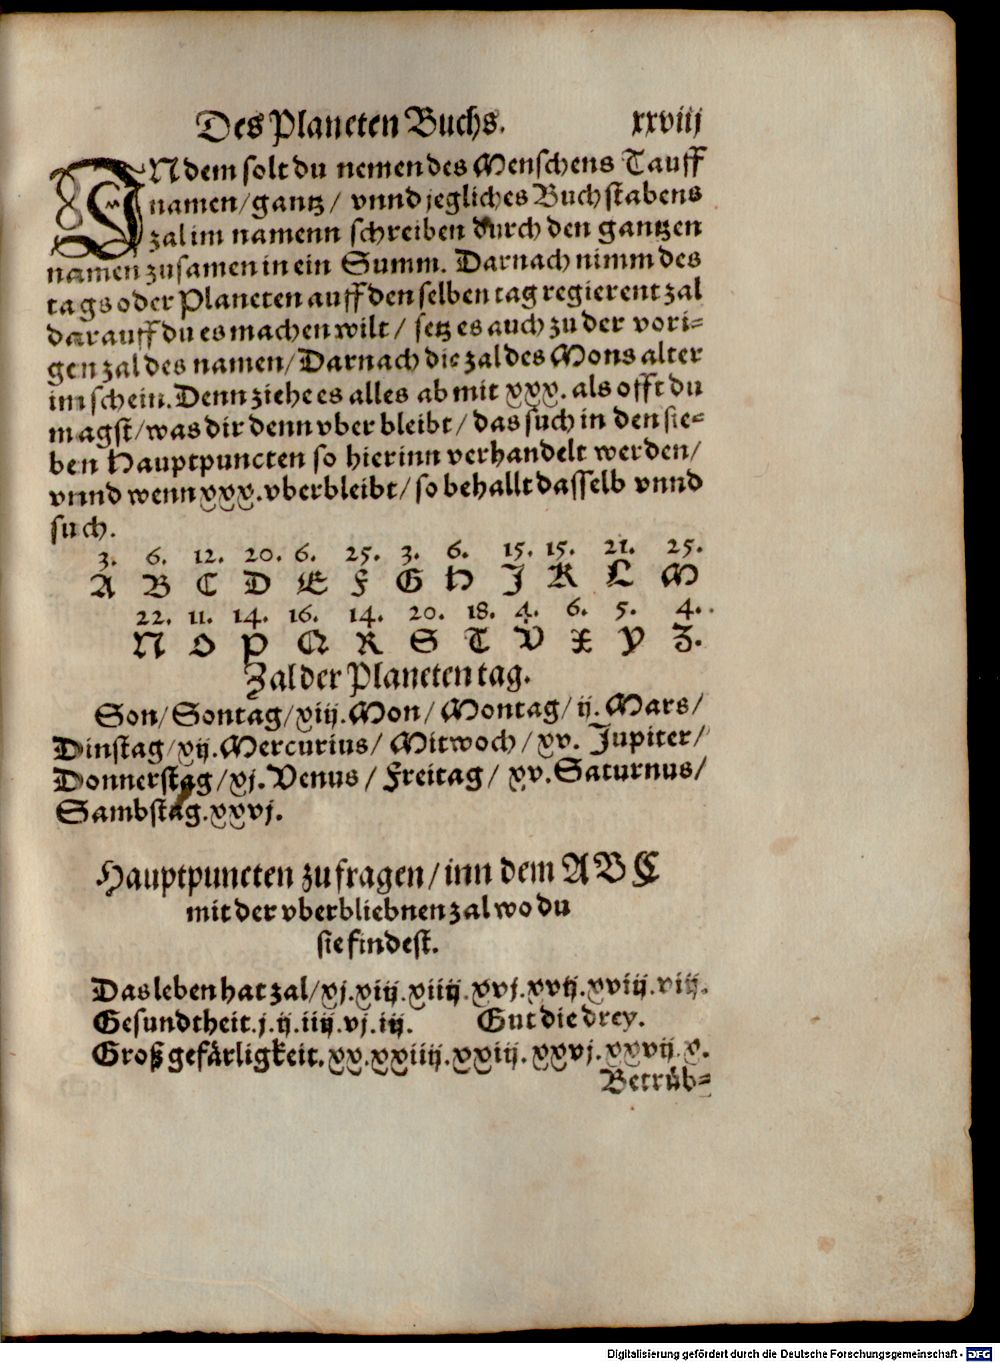 Des Planeten Buchs. xxviij
INdem solt du nemen des Menschens Tauff
namen/gantz/ vnnd jegliches Buchstabens
zal im namenn schreiben durch den gantzen
namen zusamen in ein Summ. Darnach nimm des
tags oder Planeten auff den selben tag regierent zal
darauff du es machen wilt/ setz es auch zu der vori=
gen zal des namen/ Darnach die zal des Mons alter
im schein. Denn ziehe es alles ab mit xxx. als offt du
magst/was dir denn vber bleibt/ das such in den sie=
ben Hauptpuncten so hierinn verhandelt werden/
vnnd wenn xxx. vberbleibt/ so behallt dasselb vnnd
such.
3. 6. 12. 20. 6. 25. 3. 6. 15. 15. 21. 25.
A B C D E F G H J K L M
22. 11. 14. 16. 14. 20. 18. 4. 6. 5. 4.
N O P Q R S T V X Y Z.
Zal der Planeten tag.
Son/ Sontag/ xiij. Mon/ Montag/ ij. Mars/
Dinstag/ xij. Mercurius/ Mitwoch/ xv. Jupiter/
Donnerstag/ xj. Venus/ Freitag/ xv. Saturnus/
Sambstag. xxvj.
Hauptpuncten zu fragen/ inn dem ABC
mit der vberbliebnen zal wo du
sie findest.
Das leben hat zal/ xj. xiij. xiiij. xvj. xvij. xviij. viij.
Gesundtheit. j. ij. iiij. vj. iij. Gut die drey.
Groß gefärligkeit. xx. xxiiij. xxiij. xxvj. xxvij. v.
Betrüb=
Digitalisierung gefördert durch die Deutsche Forschungsgemeinschaft - DFG